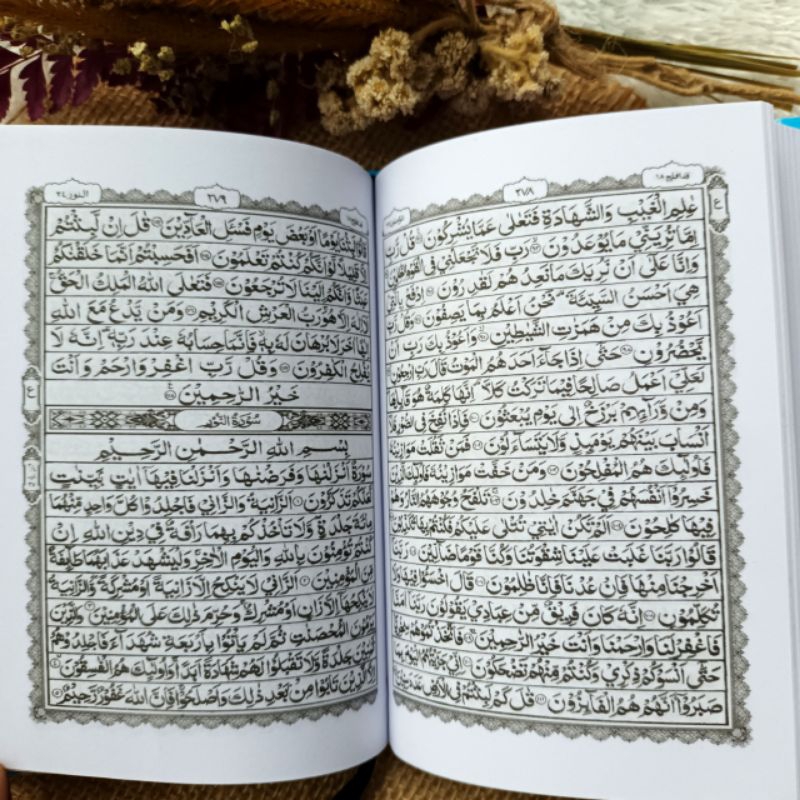 قد افلح ١٨
٣٧٨
عٰلِمِ الْغَيْبِ وَالشَّهَادَةِ فَتَعٰلٰى عَمَّا يُشْرِكُوْنَ ۝ قُلْ رَّبِّ
اِمَّا تُرِيَنِّيْ مَا يُوْعَدُوْنَ ۝ رَبِّ فَلَا تَجْعَلْنِيْ فِى الْقَوْمِ الظّٰلِمِيْنَ
وَاِنَّا عَلٰٓى اَنْ نُّرِيَكَ مَا نَعِدُهُمْ لَقٰدِرُوْنَ ۝ اِدْفَعْ بِالَّتِيْ
هِيَ اَحْسَنُ السَّيِّئَةَ ۗ نَحْنُ اَعْلَمُ بِمَا يَصِفُوْنَ ۝ وَقُلْ رَّبِّ
اَعُوْذُ بِكَ مِنْ هَمَزٰتِ الشَّيٰطِيْنِ ۝ وَاَعُوْذُ بِكَ رَبِّ اَنْ
يَّحْضُرُوْنِ ۝ حَتّٰٓى اِذَا جَآءَ اَحَدَهُمُ الْمَوْتُ قَالَ رَبِّ ارْجِعُوْنِ
لَعَلِّيْٓ اَعْمَلُ صَالِحًا فِيْمَا تَرَكْتُ كَلَّا ۗ اِنَّهَا كَلِمَةٌ هُوَ قَآئِلُهَا
وَمِنْ وَّرَآئِهِمْ بَرْزَخٌ اِلٰى يَوْمِ يُبْعَثُوْنَ ۝ فَاِذَا نُفِخَ فِى الصُّوْرِ فَلَآ
اَنْسَابَ بَيْنَهُمْ يَوْمَئِذٍ وَّلَا يَتَسَآءَلُوْنَ ۝ فَمَنْ ثَقُلَتْ مَوَازِيْنُهٗ
فَاُولٰٓئِكَ هُمُ الْمُفْلِحُوْنَ ۝ وَمَنْ خَفَّتْ مَوَازِيْنُهٗ فَاُولٰٓئِكَ الَّذِيْنَ
خَسِرُوْٓا اَنْفُسَهُمْ فِيْ جَهَنَّمَ خٰلِدُوْنَ ۝ تَلْفَحُ وُجُوْهَهُمُ النَّارُ وَهُمْ
فِيْهَا كٰلِحُوْنَ ۝ اَلَمْ تَكُنْ اٰيٰتِيْ تُتْلٰى عَلَيْكُمْ فَكُنْتُمْ بِهَا تُكَذِّبُوْنَ
قَالُوْا رَبَّنَا غَلَبَتْ عَلَيْنَا شِقْوَتُنَا وَكُنَّا قَوْمًا ضَآلِّيْنَ ۝ رَبَّنَآ
اَخْرِجْنَا مِنْهَا فَاِنْ عُدْنَا فَاِنَّا ظٰلِمُوْنَ ۝ قَالَ اخْسَـُٔوْا فِيْهَا وَلَا
تُكَلِّمُوْنِ ۝ اِنَّهٗ كَانَ فَرِيْقٌ مِّنْ عِبَادِيْ يَقُوْلُوْنَ رَبَّنَآ اٰمَنَّا
فَاغْفِرْ لَنَا وَارْحَمْنَا وَاَنْتَ خَيْرُ الرّٰحِمِيْنَ ۝ فَاتَّخَذْتُمُوْهُمْ سِخْرِيًّا
حَتّٰٓى اَنْسَوْكُمْ ذِكْرِيْ وَكُنْتُمْ مِّنْهُمْ تَضْحَكُوْنَ ۝ اِنِّيْ جَزَيْتُهُمُ الْيَوْمَ بِمَا
صَبَرُوْٓا اَنَّهُمْ هُمُ الْفَآئِزُوْنَ ۝ قٰلَ كَمْ لَبِثْتُمْ فِى الْاَرْضِ عَدَدَ سِنِيْنَ
ع
٣٧٩
النور ٢٤
قَالُوْا لَبِثْنَا يَوْمًا اَوْ بَعْضَ يَوْمٍ فَسْـَٔلِ الْعَآدِّيْنَ ۝ قٰلَ اِنْ لَّبِثْتُمْ
اِلَّا قَلِيْلًا لَّوْ اَنَّكُمْ كُنْتُمْ تَعْلَمُوْنَ ۝ اَفَحَسِبْتُمْ اَنَّمَا خَلَقْنٰكُمْ
عَبَثًا وَّاَنَّكُمْ اِلَيْنَا لَا تُرْجَعُوْنَ ۝ فَتَعٰلَى اللّٰهُ الْمَلِكُ الْحَقُّ
لَآ اِلٰهَ اِلَّا هُوَ رَبُّ الْعَرْشِ الْكَرِيْمِ ۝ وَمَنْ يَّدْعُ مَعَ اللّٰهِ
اِلٰهًا اٰخَرَ لَا بُرْهَانَ لَهٗ بِهٖ فَاِنَّمَا حِسَابُهٗ عِنْدَ رَبِّهٖ ۗ اِنَّهٗ لَا
يُفْلِحُ الْكٰفِرُوْنَ ۝ وَقُلْ رَّبِّ اغْفِرْ وَارْحَمْ وَاَنْتَ
خَيْرُ الرّٰحِمِيْنَ ۝
سُوْرَةُ النُّوْرِ
بِسْمِ اللّٰهِ الرَّحْمٰنِ الرَّحِيْمِ
سُوْرَةٌ اَنْزَلْنٰهَا وَفَرَضْنٰهَا وَاَنْزَلْنَا فِيْهَآ اٰيٰتٍ بَيِّنٰتٍ
لَّعَلَّكُمْ تَذَكَّرُوْنَ ۝ اَلزَّانِيَةُ وَالزَّانِيْ فَاجْلِدُوْا كُلَّ وَاحِدٍ مِّنْهُمَا
مِائَةَ جَلْدَةٍ وَّلَا تَأْخُذْكُمْ بِهِمَا رَأْفَةٌ فِيْ دِيْنِ اللّٰهِ اِنْ
كُنْتُمْ تُؤْمِنُوْنَ بِاللّٰهِ وَالْيَوْمِ الْاٰخِرِ وَلْيَشْهَدْ عَذَابَهُمَا طَآئِفَةٌ
مِّنَ الْمُؤْمِنِيْنَ ۝ اَلزَّانِيْ لَا يَنْكِحُ اِلَّا زَانِيَةً اَوْ مُشْرِكَةً وَّالزَّانِيَةُ
لَا يَنْكِحُهَآ اِلَّا زَانٍ اَوْ مُشْرِكٌ وَحُرِّمَ ذٰلِكَ عَلَى الْمُؤْمِنِيْنَ ۝ وَالَّذِيْنَ
يَرْمُوْنَ الْمُحْصَنٰتِ ثُمَّ لَمْ يَأْتُوْا بِاَرْبَعَةِ شُهَدَآءَ فَاجْلِدُوْهُمْ
ثَمٰنِيْنَ جَلْدَةً وَّلَا تَقْبَلُوْا لَهُمْ شَهَادَةً اَبَدًا وَاُولٰٓئِكَ هُمُ الْفٰسِقُوْنَ ۝
اِلَّا الَّذِيْنَ تَابُوْا مِنْ بَعْدِ ذٰلِكَ وَاَصْلَحُوْا فَاِنَّ اللّٰهَ غَفُوْرٌ رَّحِيْمٌ ۝
ع